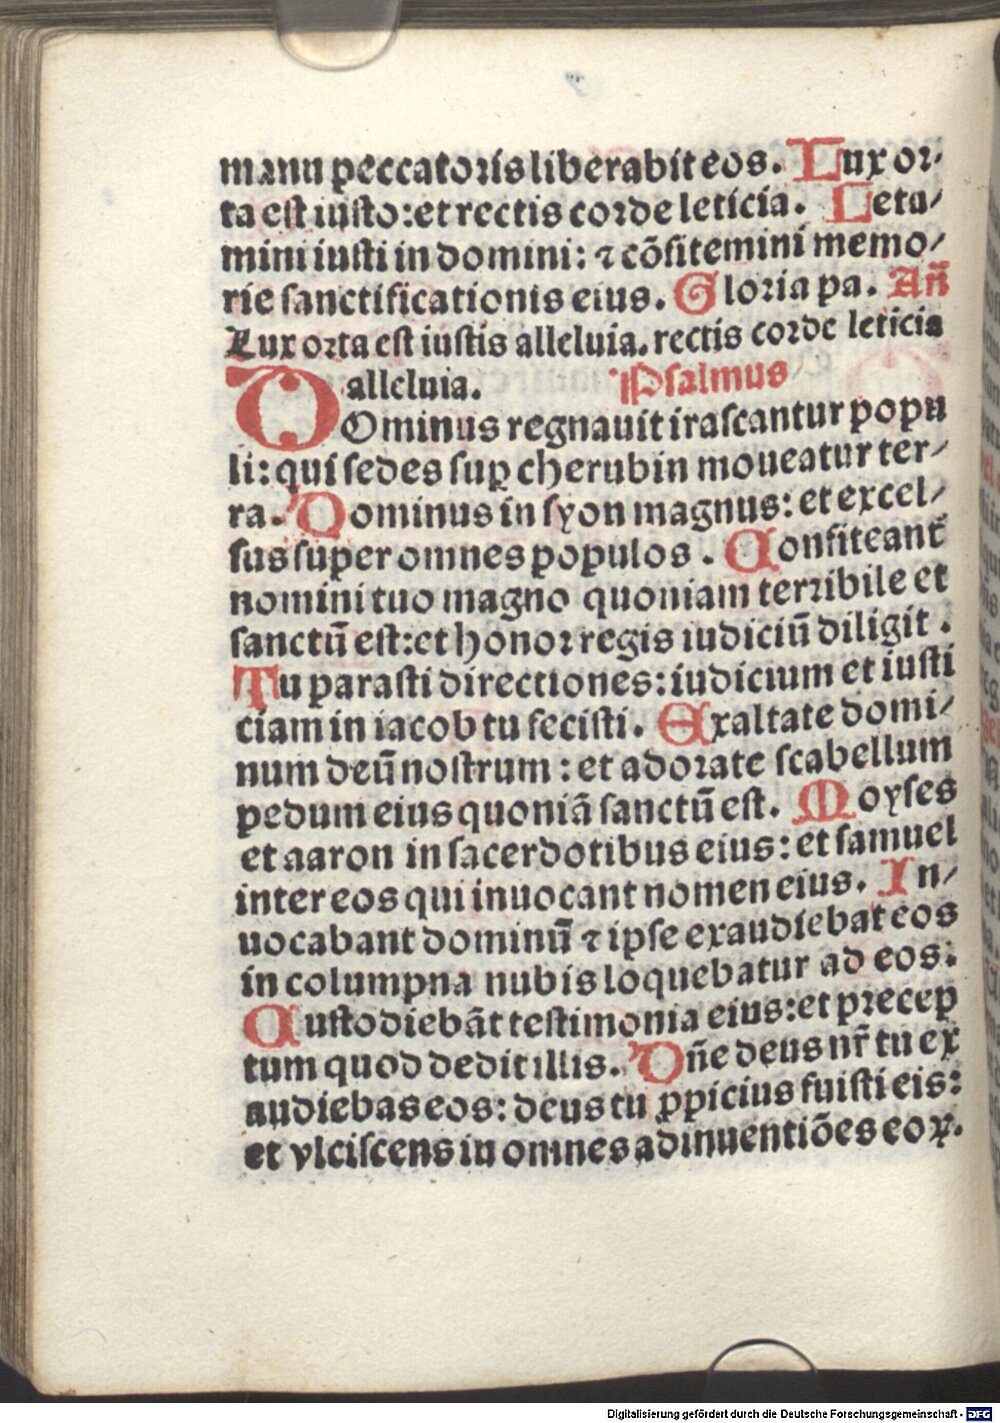 manu peccatoris liberabit eos. Lux or-
ta est iusto: et rectis corde leticia. Leta/
mini iusti in domini: ⁊ cōfitemini memo/
rie sanctificationis eius. Gloria pa. Añ
Lux orta est iustis alleluia. rectis corde leticia
alleluia. Psalmus
DOminus regnauit irascantur popu
li: qui sedes suꝑ cherubin moueatur ter/
ra. Dominus in syon magnus: et excel/
sus super omnes populos. Confiteant̃
nomini tuo magno quoniam terribile et
sanctū est: et honor regis iudiciū diligit.
Tu parasti directiones: iudicium et iusti
ciam in iacob tu fecisti. Exaltate domi/
num deū nostrum: et adorate scabellum
pedum eius quoniā sanctū est. Moyses
et aaron in sacerdotibus eius: et samuel
inter eos qui inuocant nomen eius. In/
uocabant dominū ⁊ ipse exaudiebat eos
in columpna nubis loquebatur ad eos.
Custodiebāt testimonia eius: et precep
tum quod dedit illis. Dñe deus nr̃ tu ex
audiebas eos: deus tu ꝓpicius fuisti eis:
et vlciscens in omnes adinuentiões eoꝝ.
Digitalisierung gefördert durch die Deutsche Forschungsgemeinschaft - DFG